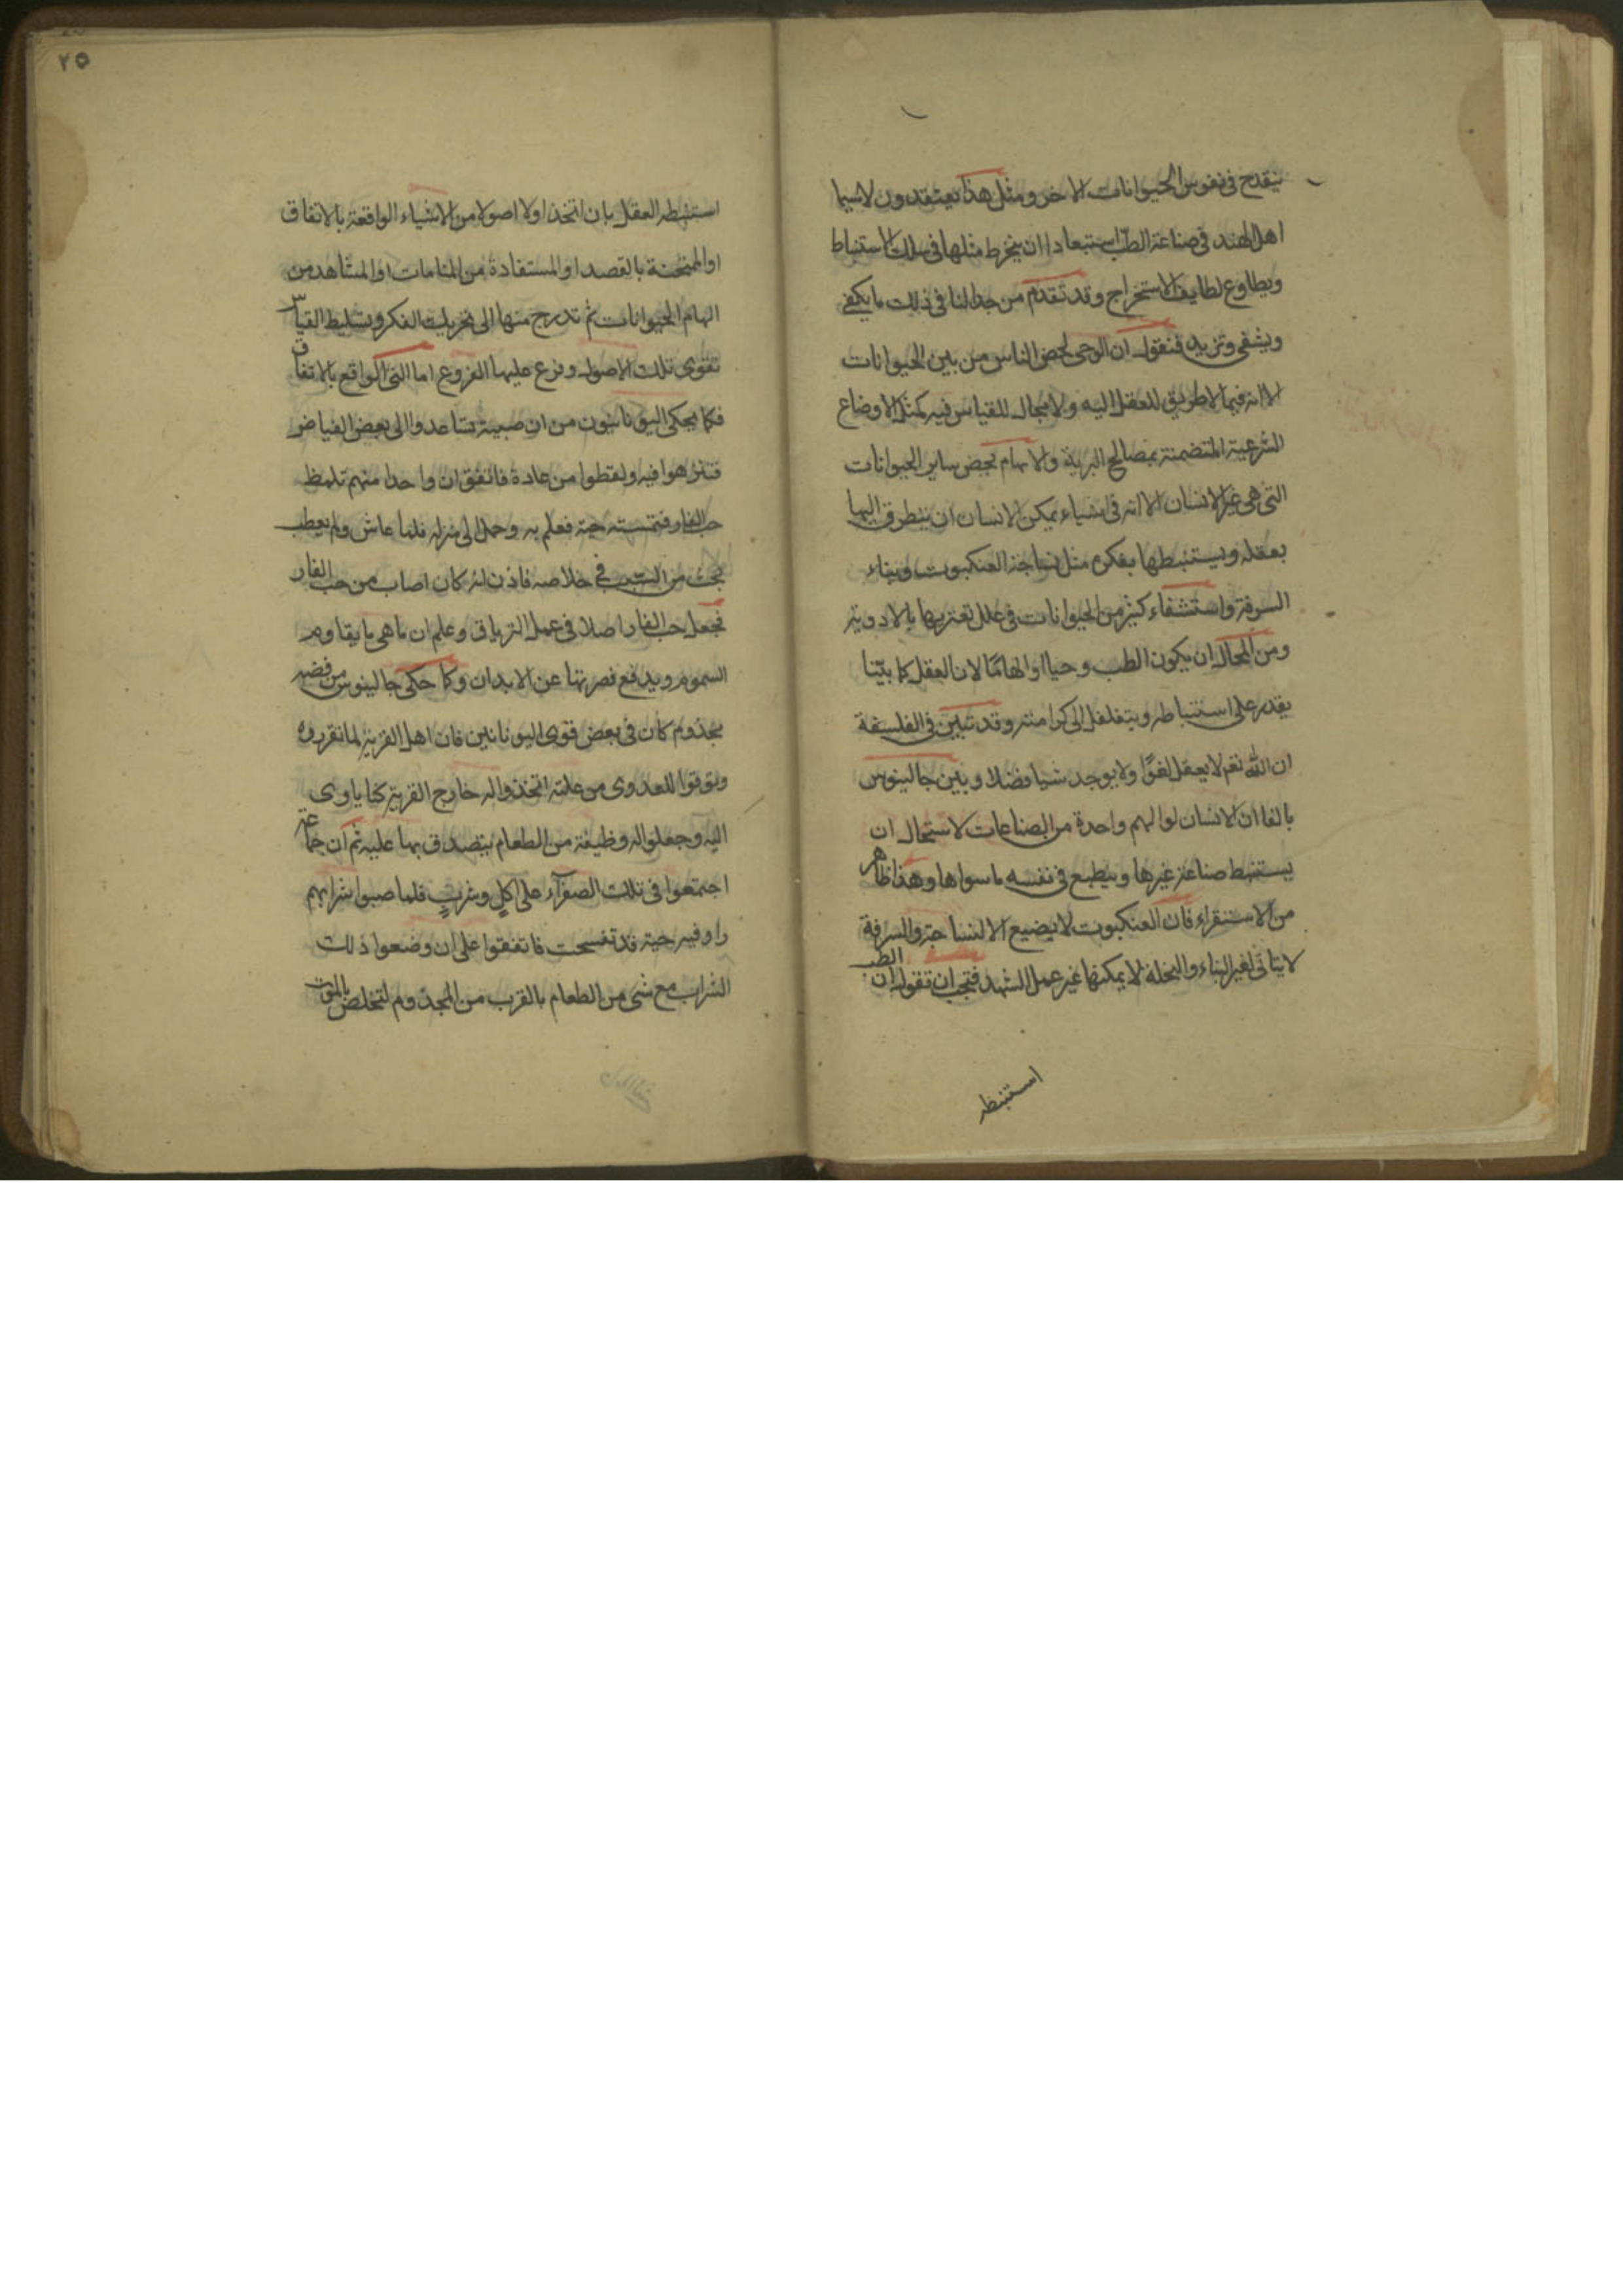 ينقدح في نفوس الحيوانات الاخر ومثل هذا يعتقدون لاسيما
اهل الهند في صناعة الطب استبعادا ان ينخرط مثلها في سلك الاستنباط
ويطاوع لطايف الاستخراج وقد تقدم من جدالنا في ذلك ما يكفي
ويشفي ونزيد فنقول ان الوحي يخص الناس من بين الحيوانات
الا انه فيما لا طريق للعقل اليه ولا مجال للقياس فيه كمثل الاوضاع
الشرعية المتضمنة بمصالح البرية والالهام يخص ساير الحيوانات
التي هي غير الانسان الا انه في اشياء يمكن الانسان ان يتطرق اليها
بعقله ويستنبطها بفكره مثل نساجة العنكبوت وبناء
السرفة واستشفاء كثير من الحيوانات في علل تعتريها بالادوية
ومن المحال ان يكون الطب وحيا او الهامًا لان العقل كما بيّنا
يقدر على استنباطه ويتغلغل الى كوامنه وقد تبين في الفلسفة
ان الله تعم لا يعقل لغوًا ولا يوجد شيا فضلا وبين جالينوس
بالغا ان الانسان لو الهم واحدة من الصناعات لاستحال ان
يستنبط صناعة غيرها وينطبع في نفسه ما سواها وهذا ظاهر
من الاستقراء فان العنكبوت لا يضيع الا لنساجة والسرفة
لا يتاتى لغير البناء والنحلة لا يمكنها غير عمل الشهد فيجب ان نقول ان الطب
استنبطه
٢٥
استنبطه العقل بان اتخذ اولا اصولا من الاشياء الواقعة بالاتفاق
او الممتحنة بالقصد او المستفادة من المنامات او المشاهد من
الهام الحيوانات ثم تدرج منها الى تحريك الفكر وتسليط القياس
تقوى تلك الاصول وفرع عليها الفروع اما الشي الواقع بالاتفاق
فكما يحكي اليونانيون من ان صبية تساعدوا الى بعض الغياض
فتنزهوا فيه ولقطوا من عادة فاتفق ان واحدا منهم تلمظ
حب الغار فنهسته حية فعلم به وحمل الى منزله فلما عاش ولم يعطب
بحث من السبب في خلاصه فاذن انه كان اصاب من حب الغار
فجعل حب الغار اصلا في عمل الترياق وعلم ان ماهي ما يقاوم
السموم ويدفع مضرتها عن الابدان وكما حكى جالينوس من قضيه
مجذوم كان في بعض قوى اليونانين فان اهل القرية لما تقرروه
وتوقوا للعدوى من علته اتخذوا له خارج القرية كنا ياوى
اليه وجعلوا له وظيفة من الطعام يتصدق بها عليه ثم ان جماعة
اجتمعوا في تلك الصفرآء على اكلٍ وشربٍ فلما صبوا شرابهم
راو فيه حية قد تفسخت فاتفقوا على ان وضعوا ذلك
الشراب مع شي من الطعام بالقرب من المجذوم لتخلص بالموت